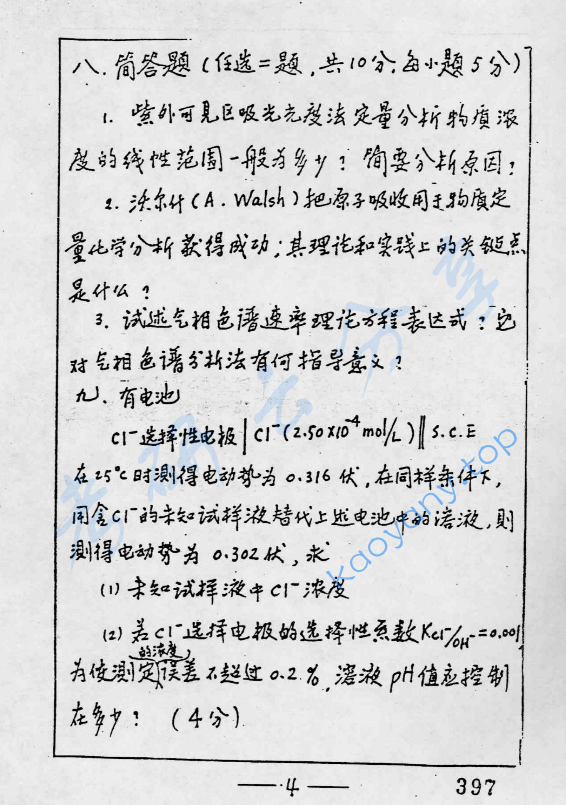 八. 简答题 (任选二题, 共10分, 每小题5分)
1. 紫外可见区吸光光度法定量分析物质浓
度的线性范围一般为多少? 简要分析原因?
2. 沃尔什 (A. Walsh) 把原子吸收用于物质定
量化学分析获得成功; 其理论和实践上的关键点
是什么?
3. 试述气相色谱速率理论方程表达式? 它
对气相色谱分析法有何指导意义?
九. 有电池
Cl⁻选择性电极 | Cl⁻(2.50×10⁻⁴mol/L) ‖ S.C.E
在25℃时测得电动势为0.316伏, 在同样条件下,
用含Cl⁻的未知试样液替代上述电池中的溶液, 则
测得电动势为0.302伏, 求
(1) 未知试样液中Cl⁻浓度
(2) 若Cl⁻选择电极的选择性系数Kcl⁻/OH⁻=0.001,
为使测定的浓度误差不超过0.2%, 溶液pH值应控制
在多少? (4分)
— 4 —
397
考研公司
kaoyany.top